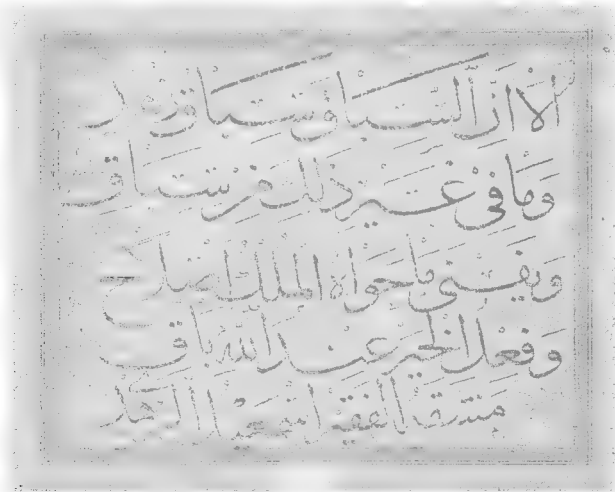 ألا إن السباق سباق زهد
وما في غير ذلك من سباق
ويفنى ما حواه الملك أصلا
وفعل الخير عند الله باق
مشقه الفقير إسمعيل الزهدي